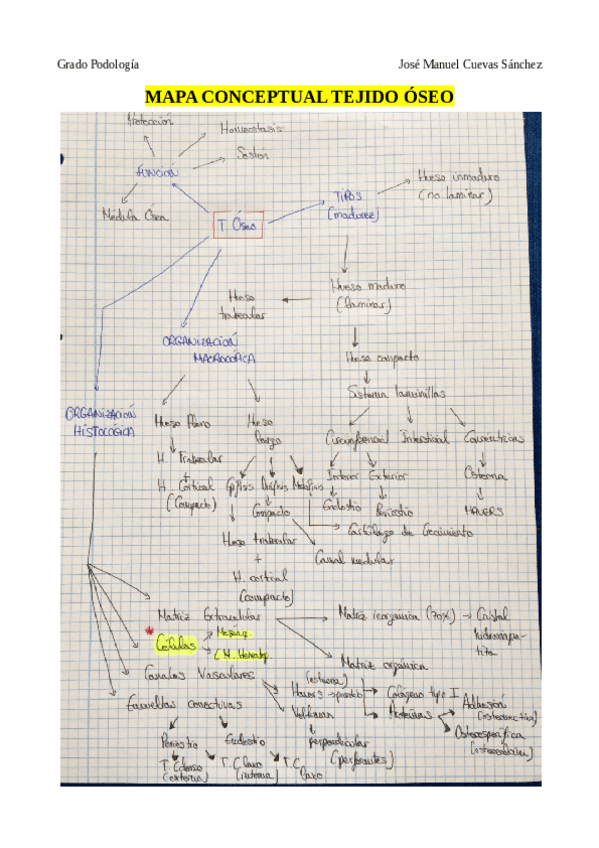 Grado Podología
José Manuel Cuevas Sánchez
MAPA CONCEPTUAL TEJIDO ÓSEO
Protección
Homeostasis
Sostén
FUNCIÓN
Médula Ósea
T. Óseo
TIPOS
(madurez)
Hueso inmaduro
(no laminar)
Hueso maduro
(laminar)
Hueso
trabecular
ORGANIZACIÓN
MACROSCÓPICA
Hueso compacto
Sistema laminillas
ORGANIZACIÓN
HISTOLÓGICA
Hueso Plano
Hueso
largo
Circunferencial
Intersticial
Concéntricas
H. Trabecular
+
H. Cortical
(Compacto)
Epífisis
Diáfisis
Metáfisis
Interior
Exterior
Osteona
Endostio
Periostio
HAVERS
Compacto
Cartílago de Crecimiento
Hueso trabecular
+
H. cortical
(compacto)
Canal medular
Matriz Extracelular
Matriz inorgánica (70%)
Cristal
hidroxiapa-
tita
Células
Mesénq.
C.M. Hematop.
Matriz orgánica
Canales Vasculares
(osteona)
Havers
Colágeno tipo I
Proteínas
Adhesión
(osteonectina)
Osteoespecífica
(osteocalcina)
Envueltas conectivas
Volkman
perpendicular
(perforantes)
Periostio
Endostio
T. C denso
(externa)
T. C laxo
(interna)
T. C
laxo